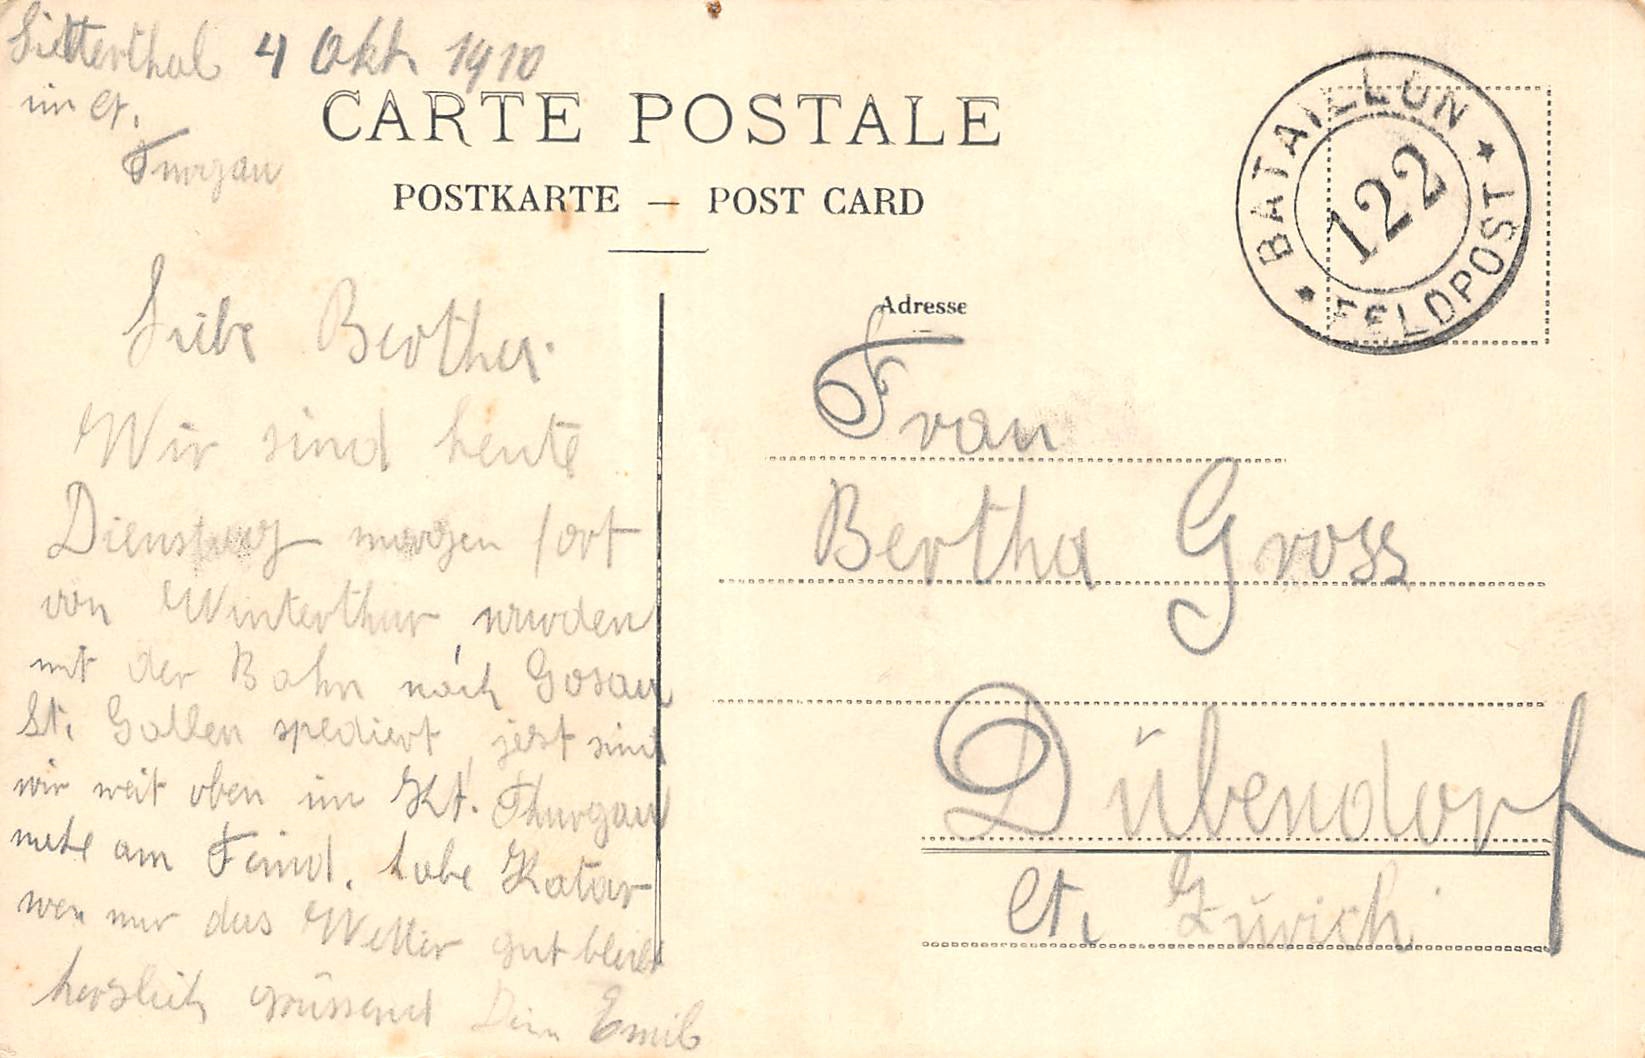 Sitterthal 4 Okt. 1910
im Ct.
Turgau
CARTE POSTALE
POSTKARTE — POST CARD
BATAILLON
122
FELDPOST
Liebe Bertha.
Wir sind heute
Dienstag morgen fort
von Winterthur wurden
mit der Bahn nach Gosau
St. Gallen spediert, jetzt sind
wir weit oben im Kt. Thurgau
am Feind. habe Katar
wen nur das Wetter gut bleibt
herzlich grüssend Dein Emil
Adresse
Frau
Bertha Gross
Dübendorf
Ct. Zürich